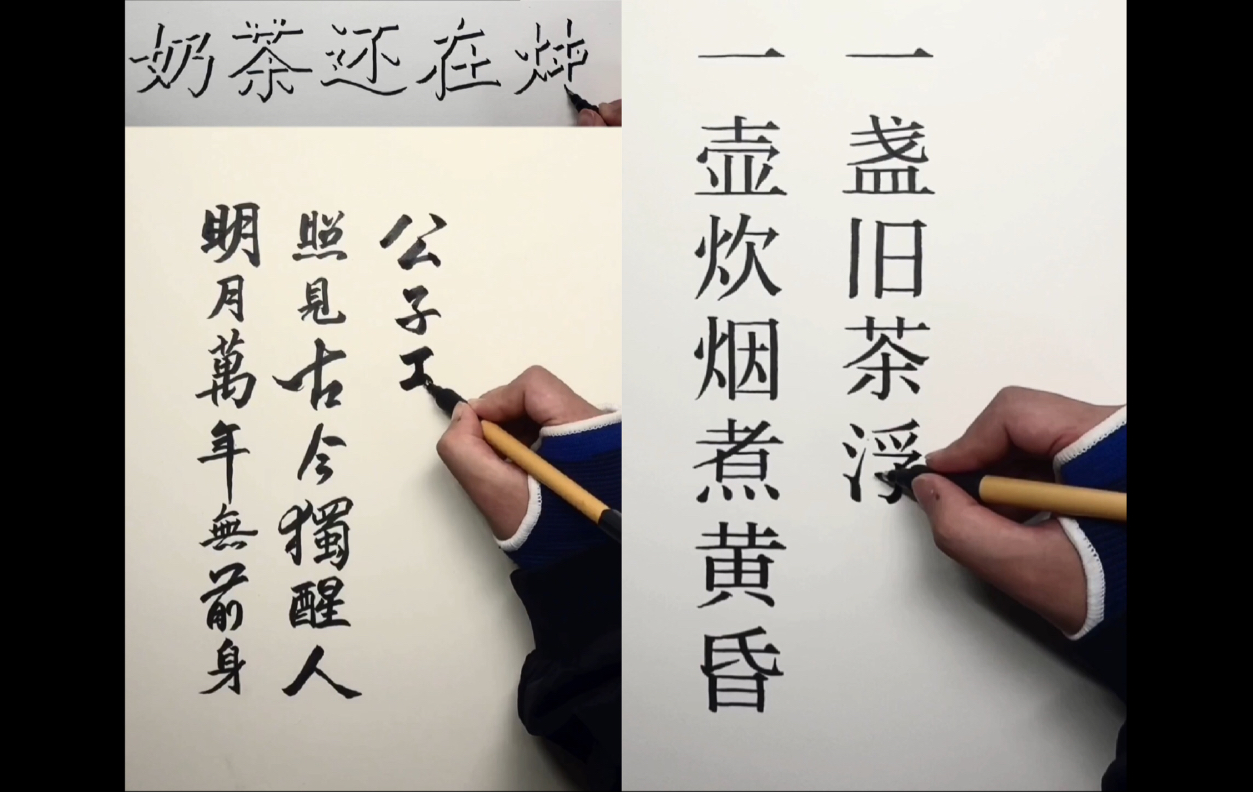 奶茶还在炖
明月萬年無前身
照見古今獨醒人
公子工
一壶炊烟煮黄昏
一盏旧茶浮